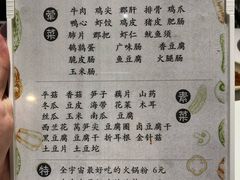 荤菜
牛肉 鸡尖 郡肝 排骨 鸡爪
鸭心 虾饺 鸡皮 猪皮 肥肠
肺片 郡把 虾仁 鱿鱼须
鹌鹑蛋 广味肠 香豆腐
脆皮肠 鱼豆腐 火腿肠
玉米肠
素菜
平菇 香菇 笋子 藕片 山药
冬瓜 豆皮 海带 花菜 木耳
丝瓜 玉米 南瓜 豆腐
西兰花 莴笋尖 豆腐圈 卤豆腐干
黑豆腐 豆腐干 折耳根 金针菇
土豆片 土豆坨
特
全宇宙最好吃的火锅粉 6元